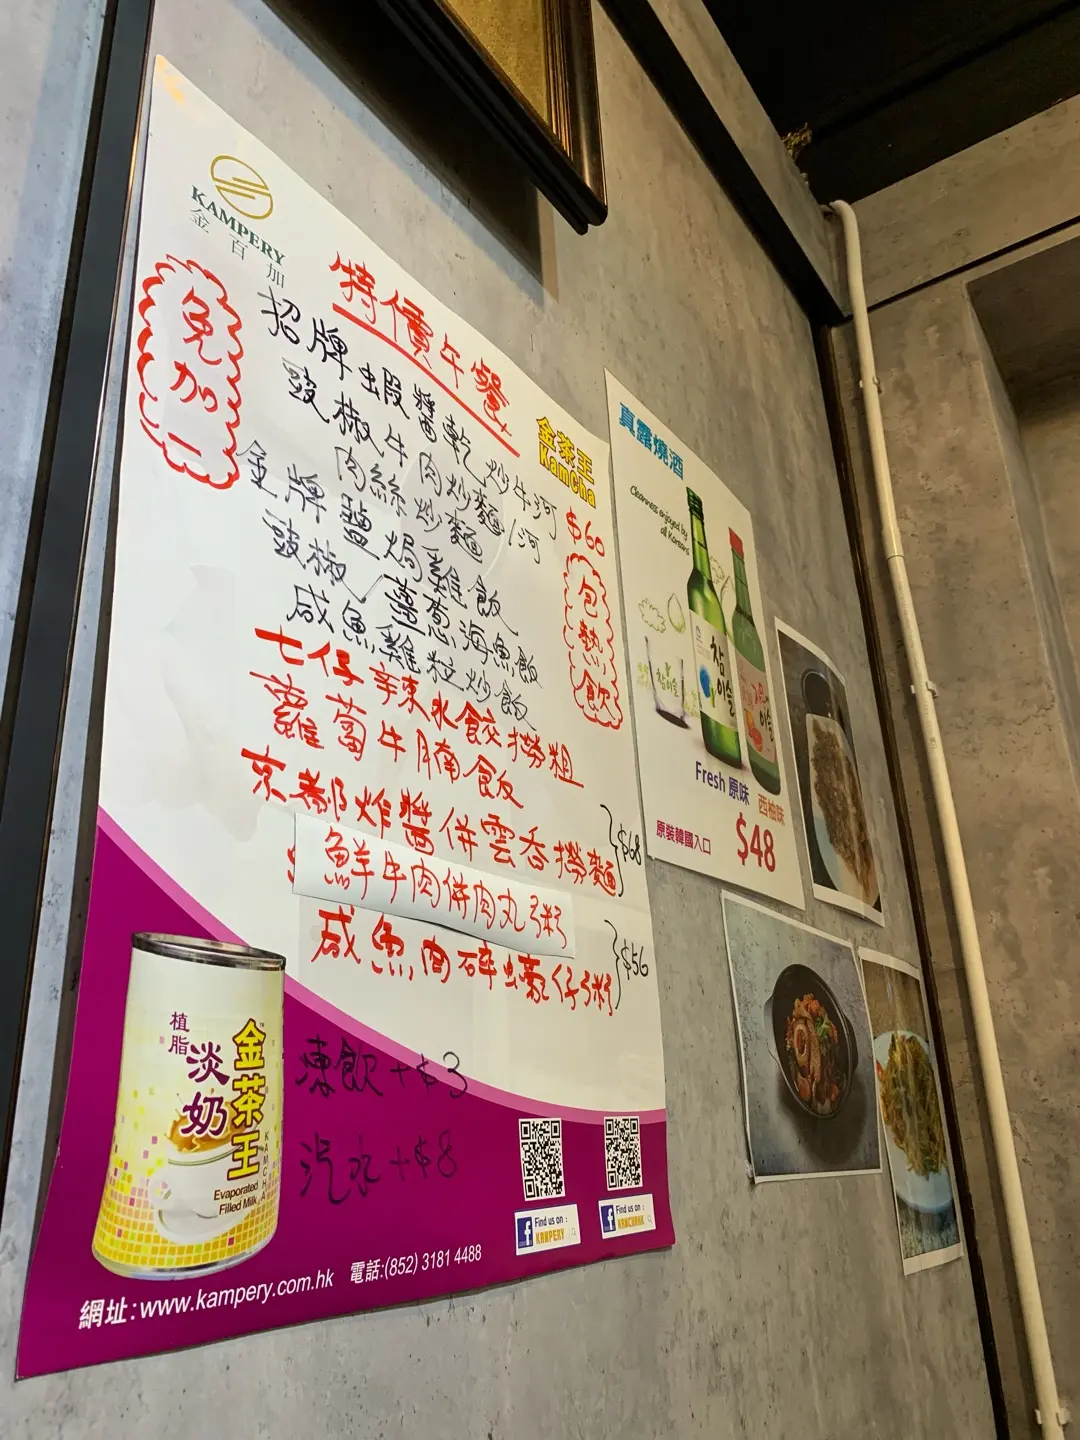 KAMPERY
金百加
特價午餐
免加一
招牌蝦醬乾炒牛河
豉椒牛肉炒麵/河
肉絲炒麵
金牌鹽焗雞飯
豉椒、薑葱海魚飯
咸魚雞粒炒飯
七仔辛柬水餃撈粗
蘿蔔牛腩飯
京都炸醬併雲吞撈麵
鮮牛肉併肉丸粥
咸魚肉碎蠔仔粥
金茶王
KamCha
$60
包熱飲
}$68
}$56
凍飲+$3
汽水+$8
植脂
淡奶
金茶王
KAMCHA
Evaporated
Filled Milk
Find us on :
KAMPERY
Find us on :
KAMCHAHK
網址:www.kampery.com.hk 電話:(852) 3181 4488
真露燒酒
Cleanness enjoyed by
all Koreans
참이슬
이슬
Fresh 原味
西柚味
原裝韓國入口
$48